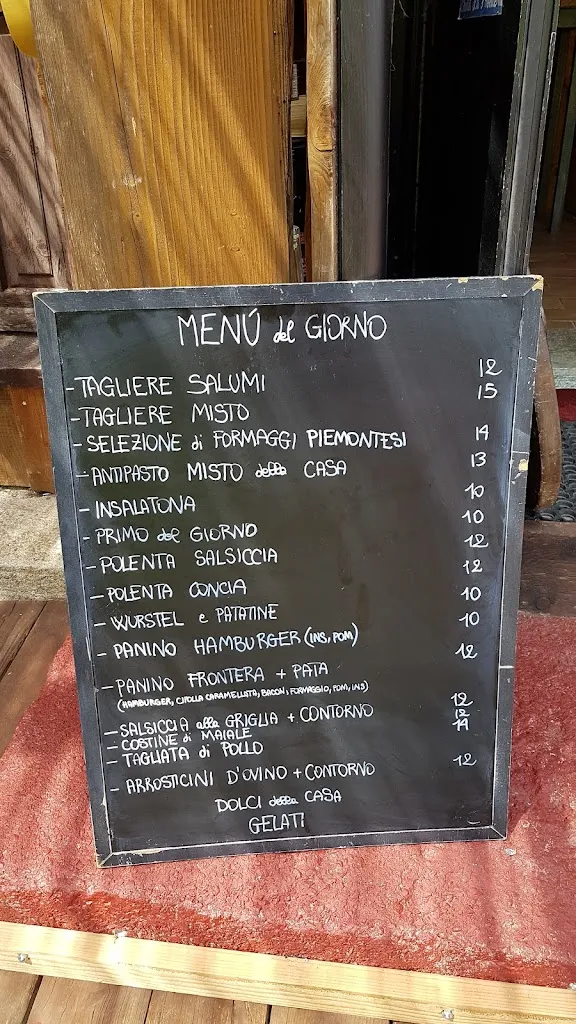 MENÚ del GIORNO
-TAGLIERE SALUMI 12
-TAGLIERE MISTO 15
-SELEZIONE di FORMAGGI PIEMONTESI 14
-ANTIPASTO MISTO della CASA 13
-INSALATONA 10
-PRIMO del GIORNO 10
-POLENTA SALSICCIA 12
-POLENTA CONCIA 12
-WURSTEL e PATATINE 10
-PANINO HAMBURGER (INS, POM) 10
-PANINO FRONTERA + PATA 12
(HAMBURGER, CIPOLLA CARAMELLATA, BACON, FORMAGGIO, POM, INS)
-SALSICCIA alla GRIGLIA + CONTORNO 12
-COSTINE di MAIALE 12
-TAGLIATA di POLLO 14
-ARROSTICINI D'OVINO + CONTORNO 12
DOLCI della CASA
GELATI